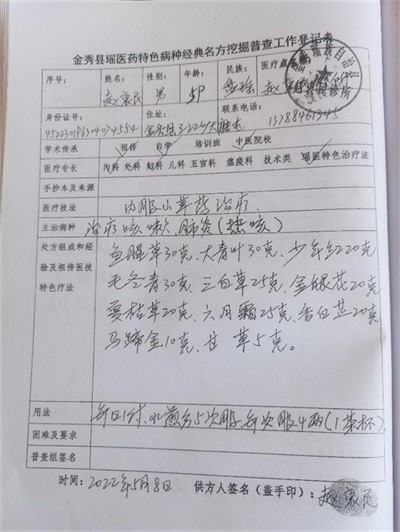 金秀县瑶医药特色病种经典名方挖掘普查工作登记表
序号： 姓名： 性别： 年龄： 民族： 医疗点
赵 民 男 59 瑶
身份证号： 联系电话：
13788461345
学术传承 祖传 自学 培训班 中医院校
医疗专长 内科 外科 妇科 儿科 五官科 瘟疫科 技术类 瑶医特色治疗法
手抄本及来源
医疗技法 内服山草药治疗
主治病种 治疗咳嗽、肺炎（热咳）
处方组成和经验及祖传医技特色疗法
鱼腥草30克、大青叶30克、少年红20克
毛冬青30克、三白草25克、金银花20克
夏枯草20克、六月霜25克、杏白芷20克
马蹄金10克、甘草5克。
用法 每日1付，水煎分5次服，每次服4两（1茶杯）
困难及要求
普查组签名
时间：2022年5月8日 供方人签名（盖手印）：赵 民